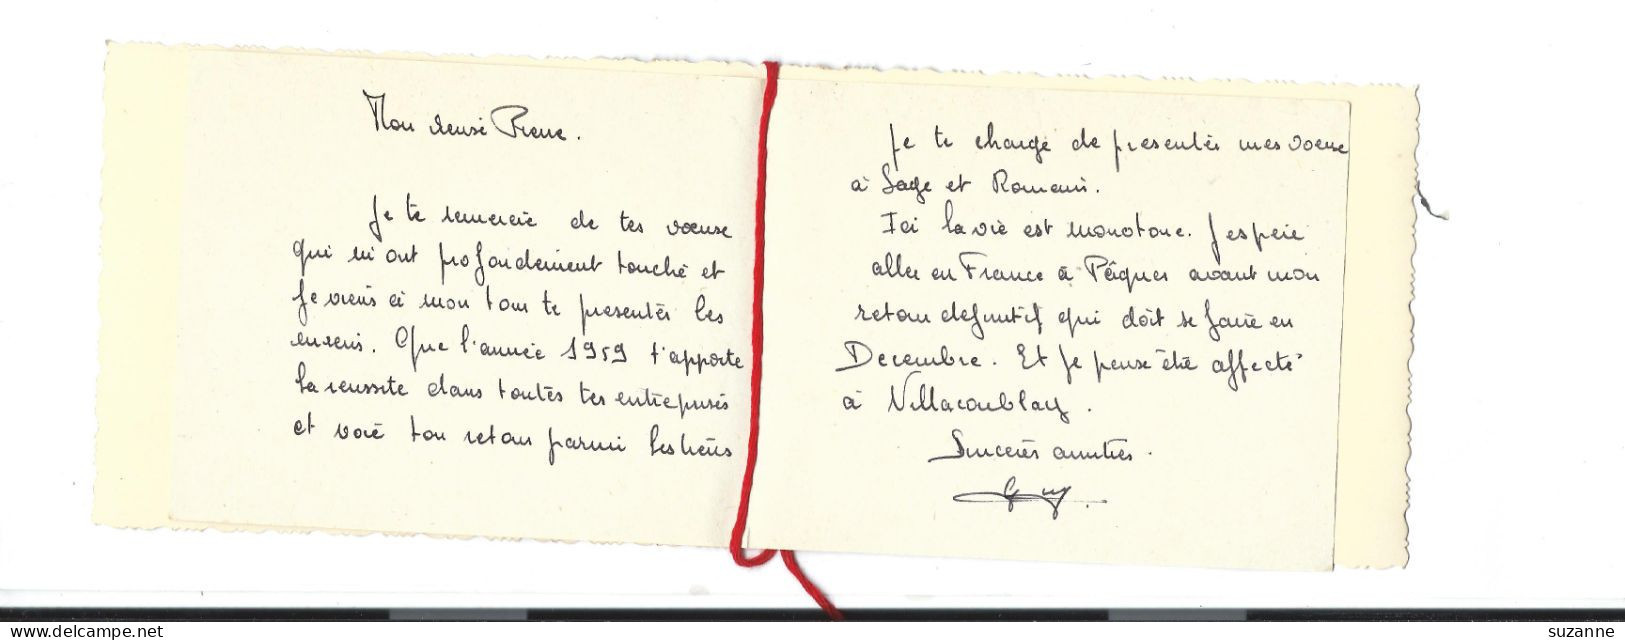 Mon cher Pierre.
Je te remercie de tes voeux
qui m'ont profondement touché et
je viens à mon tour te presenter les
miens. Que l'année 1959 t'apporte
la reussite dans toutes tes entreprises
et voie ton retour parmi les tiens
Je te charge de presenter mes voeux
à Sage et Romani.
Ici la vie est monotone. J'espere
aller en France à Pâques avant mon
retour definitif qui doit se faire en
Decembre. Et je pense être affecté
à Villacoublay.
Sinceres amitiés.
Guy
delcampe.net
suzanne